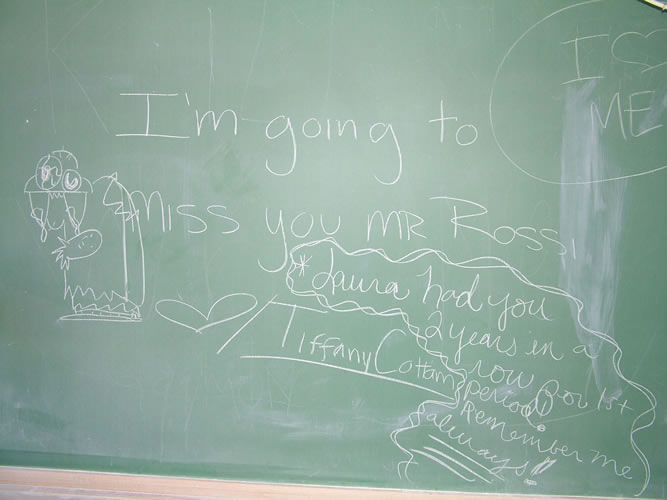 I ♡
ME
I'm going to
miss you MR Rossi
♡ / Tiffany Cottam
* Laura had you
2 years in a
row for 1st
period!
Remember me
always!!